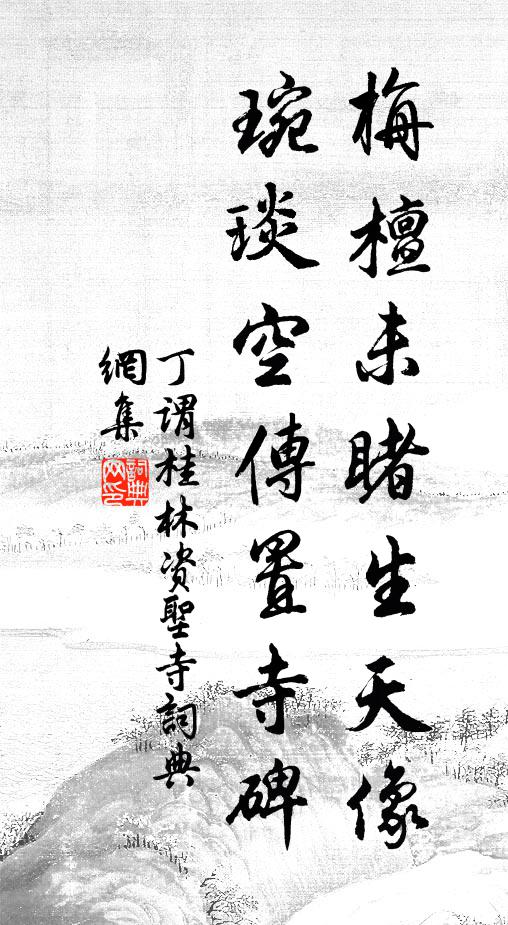 梅檀未睹生天像
琬琰空傳置寺碑
丁謂桂林资聖寺詞典
網集
詞典網印